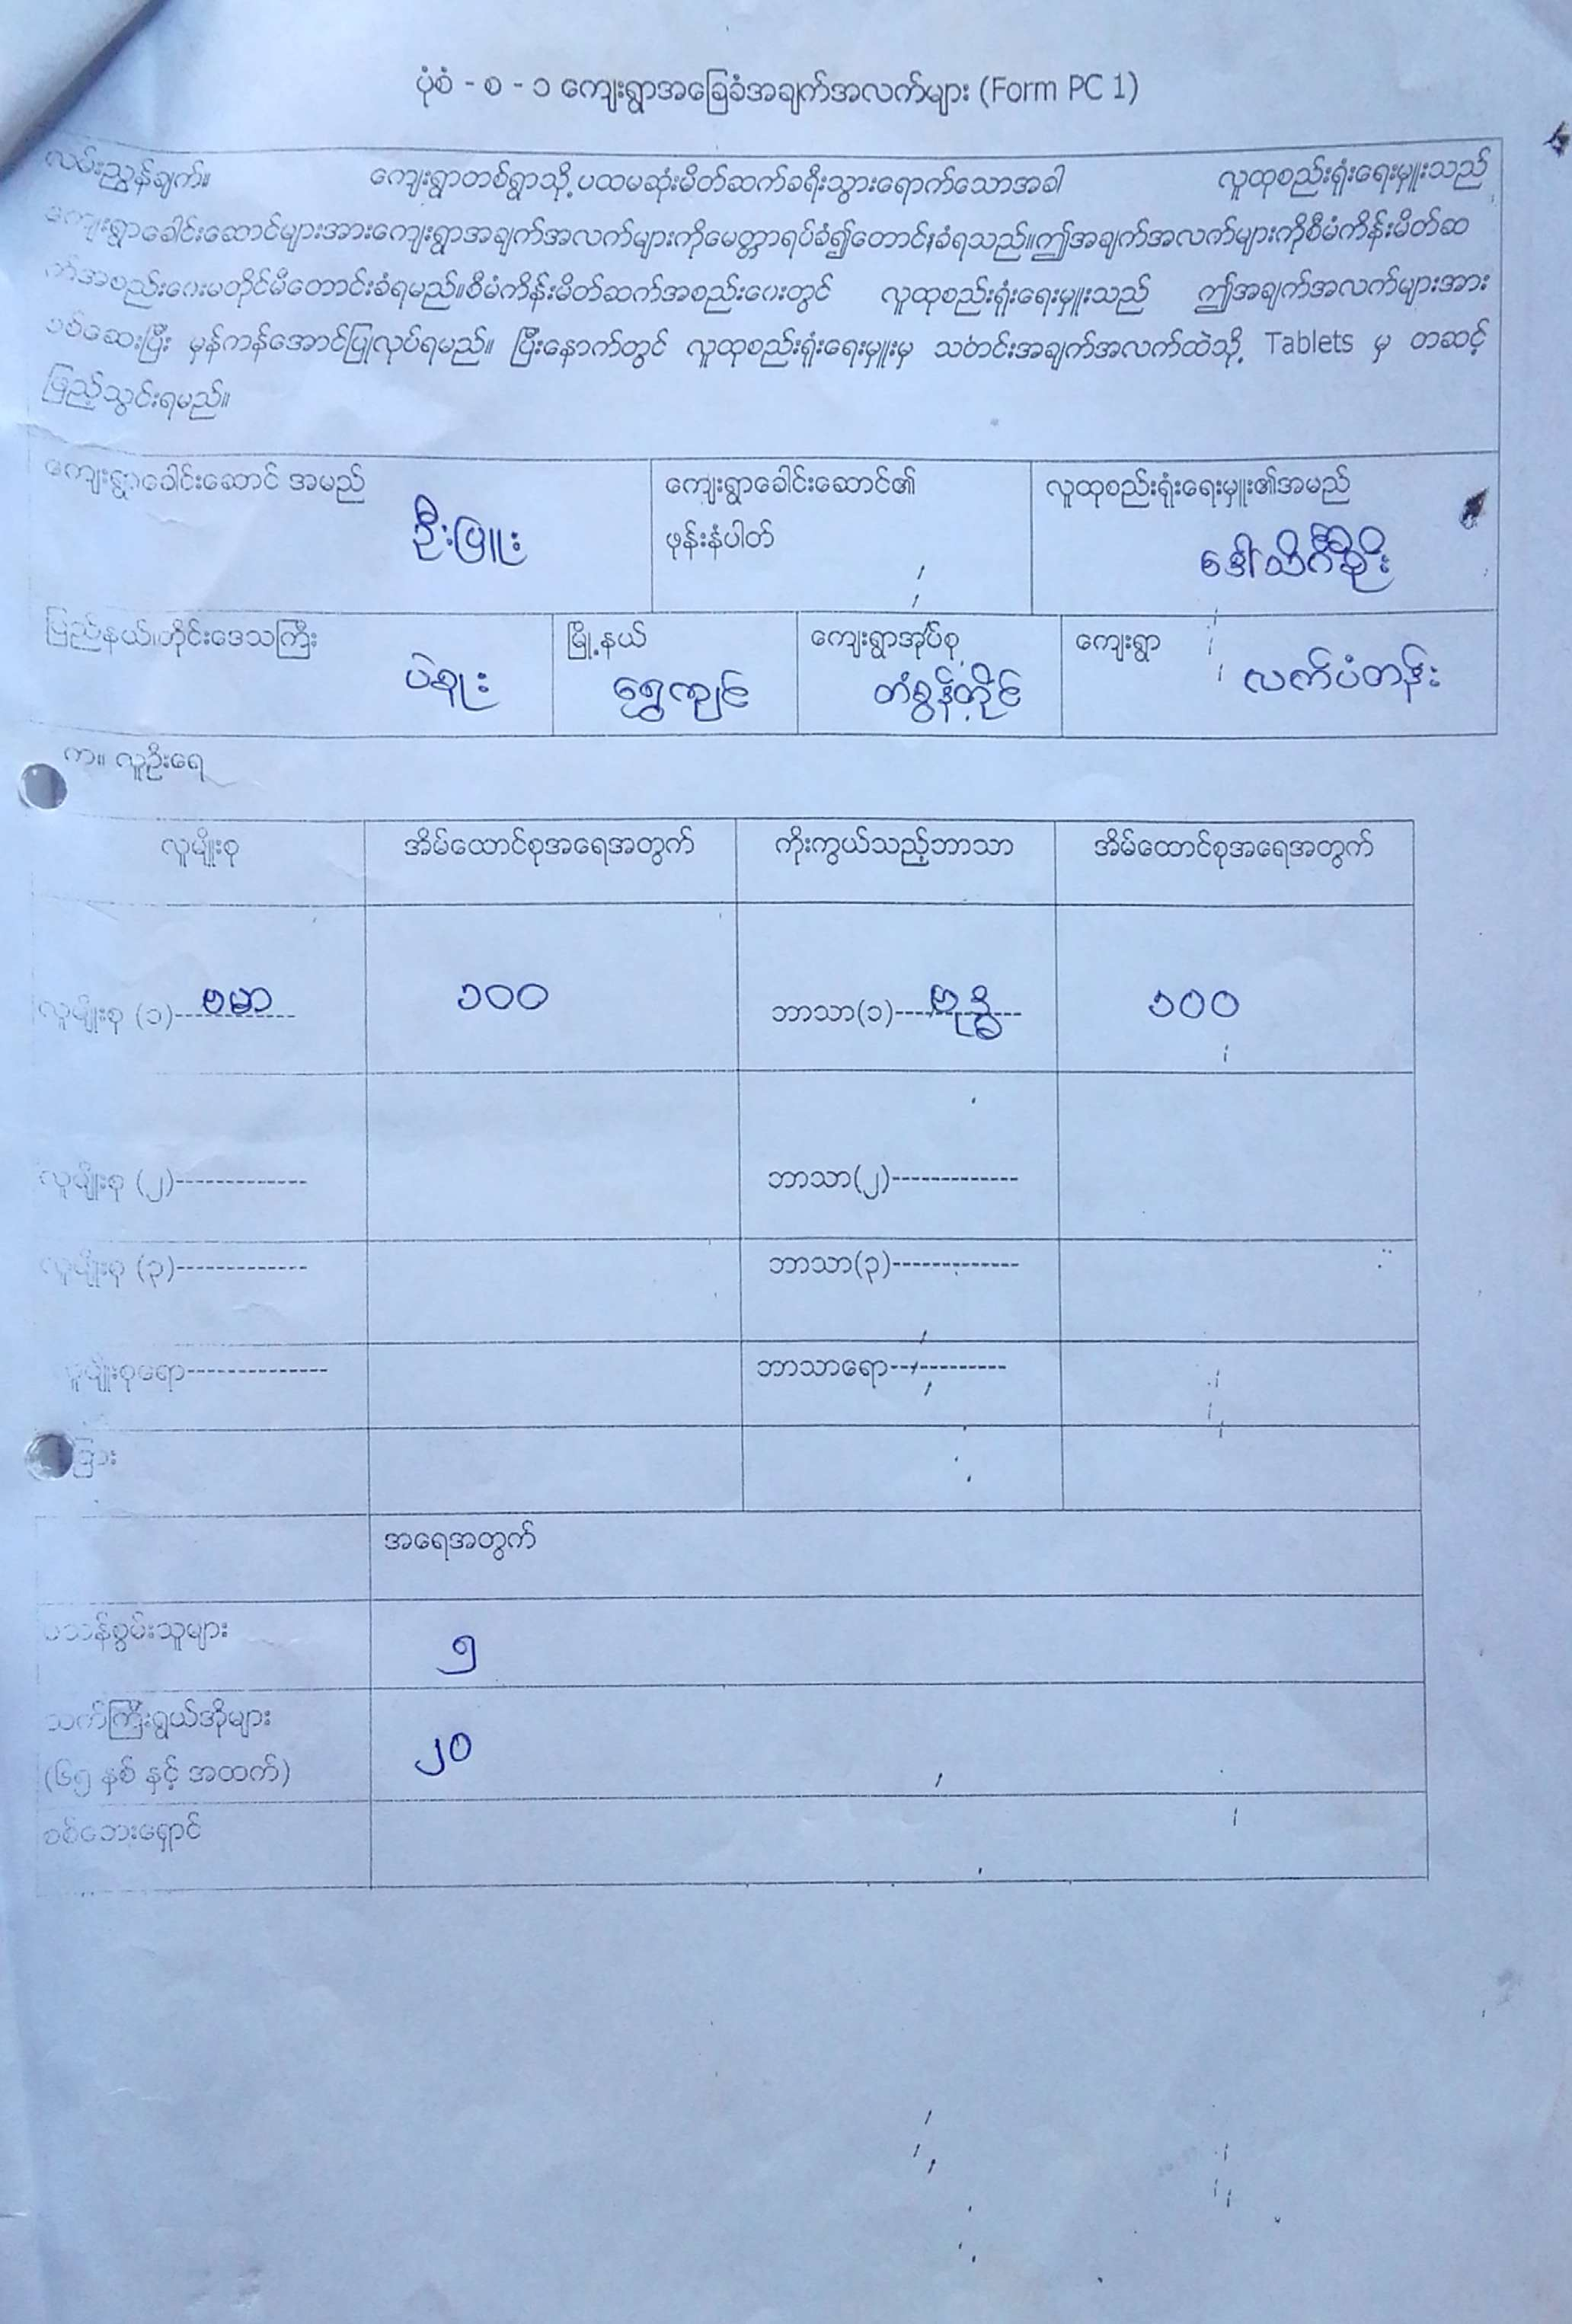 ပုံစံ - စ - ၁ ကျေးရွာအခြေခံအချက်အလက်များ (Form PC 1)
လမ်းညွှန်ချက်။ ကျေးရွာတစ်ရွာသို့ ပထမဆုံးမိတ်ဆက်ခရီးသွားရောက်သောအခါ လူထုစည်းရုံးရေးမှူးသည်
ကျေးရွာခေါင်းဆောင်များအားကျေးရွာအချက်အလက်များကိုမေတ္တာရပ်ခံ၍တောင်းခံရသည်။ဤအချက်အလက်များကိုစီမံကိန်းမိတ်ဆ
က်အစည်းဝေးမတိုင်မီတောင်းခံရမည်။စီမံကိန်းမိတ်ဆက်အစည်းဝေးတွင် လူထုစည်းရုံးရေးမှူးသည် ဤအချက်အလက်များအား
စစ်ဆေးပြီး မှန်ကန်အောင်ပြုလုပ်ရမည်။ ပြီးနောက်တွင် လူထုစည်းရုံးရေးမှူးမှ သတင်းအချက်အလက်ထဲသို့ Tablets မှ တဆင့်
ဖြည့်သွင်းရမည်။
ကျေးရွာခေါင်းဆောင် အမည် ဦးဖြူး ကျေးရွာခေါင်းဆောင်၏ လူထုစည်းရုံးရေးမှူး၏အမည်
ဖုန်းနံပါတ် ဒေါ်သိင်္ဂီစိုး
ပြည်နယ်၊တိုင်းဒေသကြီး ပဲခူး မြို့နယ် ရွှေကျင် ကျေးရွာအုပ်စု တံခွန်တိုင် ကျေးရွာ လက်ပံတန်း
က။ လူဦးရေ
လူမျိုးစု အိမ်ထောင်စုအရေအတွက် ကိုးကွယ်သည့်ဘာသာ အိမ်ထောင်စုအရေအတွက်
လူမျိုးစု (၁)------------- ဗမာ ၁၀၀ ဘာသာ(၁)------------- ဗုဒ္ဓ ၁၀၀
လူမျိုးစု (၂)------------- ဘာသာ(၂)-------------
လူမျိုးစု (၃)------------- ဘာသာ(၃)-------------
လူမျိုးစုရော-------------- ဘာသာရော------------
အခြား
အရေအတွက်
မသန်စွမ်းသူများ ၅
သက်ကြီးရွယ်အိုများ
(၆၅ နှစ် နှင့် အထက်) ၂၀
စစ်ဘေးရှောင်